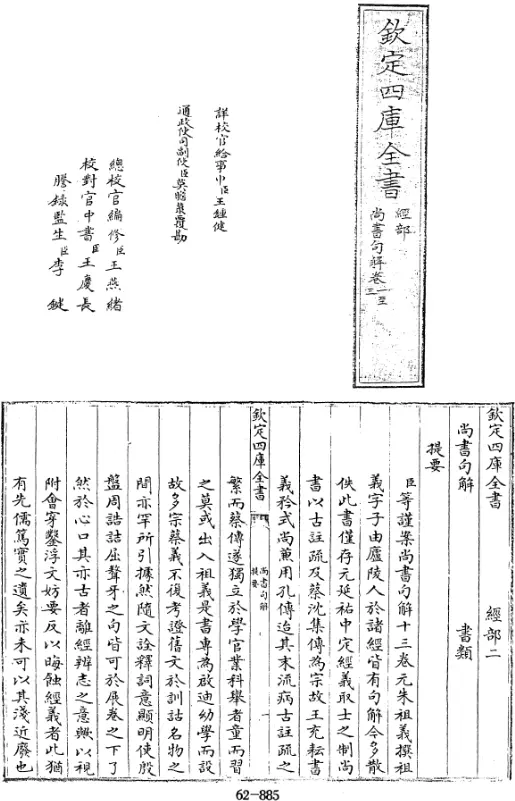 欽定四庫全書
經部
尚書句解卷一至三
詳校官給事中臣王鍾健
通政使司副使臣莫瞻菉覆勘
總校官編修臣王燕緒
校對官中書臣王慶長
謄錄監生臣李鍵
欽定四庫全書 經部二
尚書句解 書類
提要
臣等謹案尚書句解十三卷元朱祖義撰祖
義字子由廬陵人於諸經皆有句解今多散
佚此書僅存元延祐中定經義取士之制尚
書以古註疏及蔡沈集傳為宗故王充耘書
義矜式尚兼用孔傳迨其末流病古註疏之
欽定四庫全書 尚書句解 提要 一
繁而蔡傳遂獨立於學官業科舉者童而習
之莫或出入祖義是書專為啟迪幼學而設
故多宗蔡義不復考證舊文於訓詁名物之
間亦罕所引據然隨文詮釋詞意顯明使殷
盤周誥詰屈聱牙之句皆可於展卷之下了
然於心口其亦古者離經辨志之意歟以視
附會穿鑿浮文妨要反以晦蝕經義者此猶
有先儒篤實之遺矣亦未可以其淺近廢也
62-885